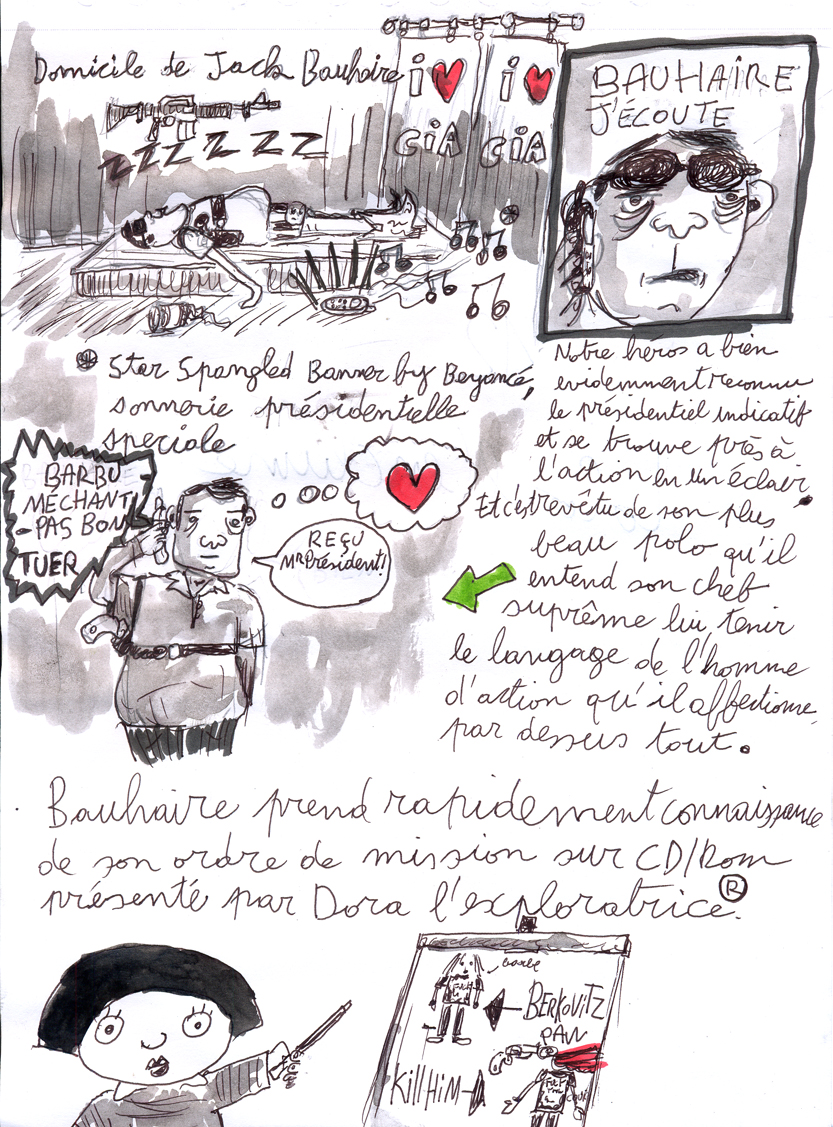 Domicile de Jack Bauhaire
i ♥ CiA
i ♥ CiA
ZZZ Z Z Z
BAUHAiRE
J'ÉCOUTE
* Star Spangled Banner by Beyoncé,
sonnerie présidentielle
speciale
Notre héros a bien
evidemment reconnu
le présidentiel indicatif
et se trouve près à
l'action en un éclair.
Et c'est revêtu de son plus
beau polo qu'il
entend son chef
suprême lui tenir
le langage de l'homme
d'action qu'il affectionne
par dessus tout.
BARBU
MÉCHANT
-PAS BON
TUER
REÇU
MR Président!
Bauhaire prend rapidement connaissance
de son ordre de mission sur CD/Rom
présenté par Dora l'exploratrice®.
BERKOViTZ
KiLL HiM
PAN